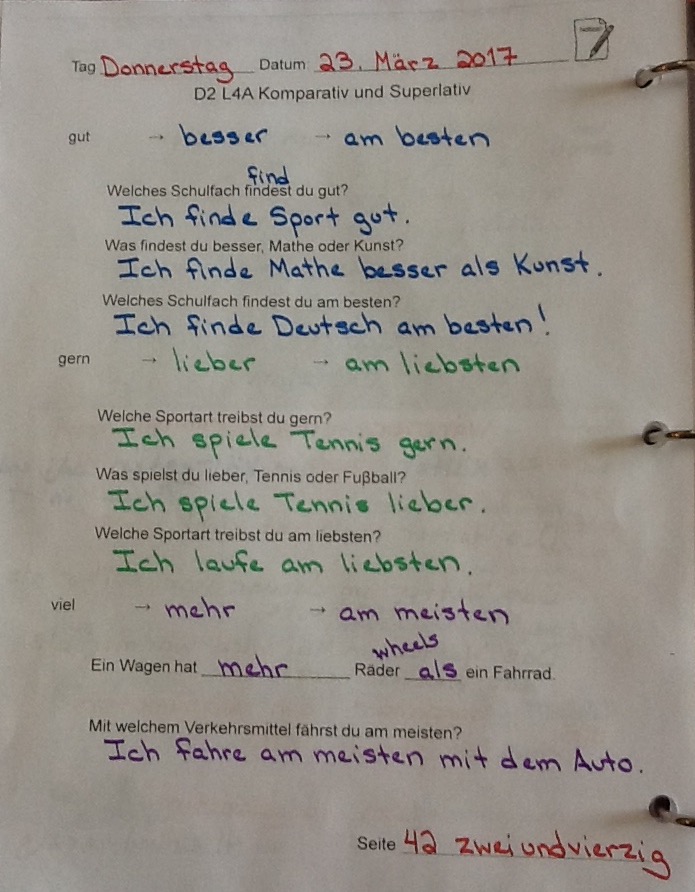 Tag Donnerstag Datum 23. März 2017
D2 L4A Komparativ und Superlativ
gut → besser → am besten
find
Welches Schulfach findest du gut?
Ich finde Sport gut.
Was findest du besser, Mathe oder Kunst?
Ich finde Mathe besser als Kunst.
Welches Schulfach findest du am besten?
Ich finde Deutsch am besten!
gern → lieber → am liebsten
Welche Sportart treibst du gern?
Ich spiele Tennis gern.
Was spielst du lieber, Tennis oder Fußball?
Ich spiele Tennis lieber.
Welche Sportart treibst du am liebsten?
Ich laufe am liebsten.
viel → mehr → am meisten
wheels
Ein Wagen hat mehr Räder als ein Fahrrad.
Mit welchem Verkehrsmittel fährst du am meisten?
Ich fahre am meisten mit dem Auto.
Seite 42 zweiundvierzig